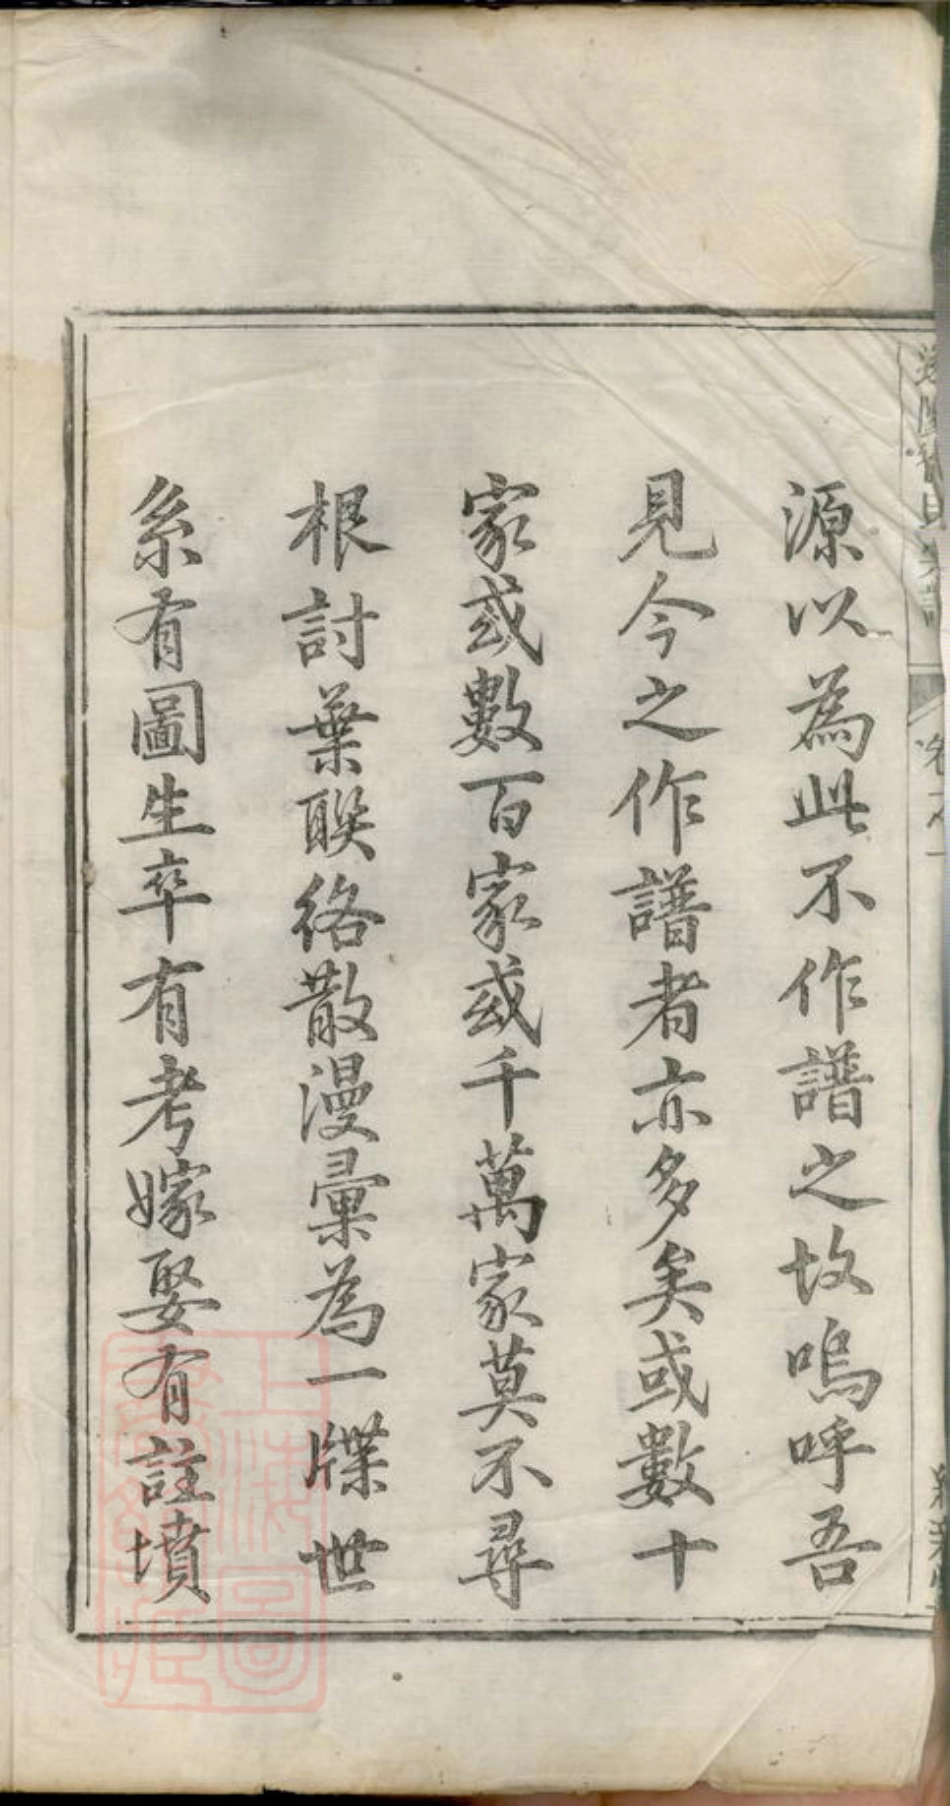 源以為此不作譜之故嗚呼吾
見今之作譜者亦多矣或數十
家或數百家或千萬家莫不尋
根討葉聯絡散漫彙為一牒世
系有圖生卒有考嫁娶有註墳
上海圖